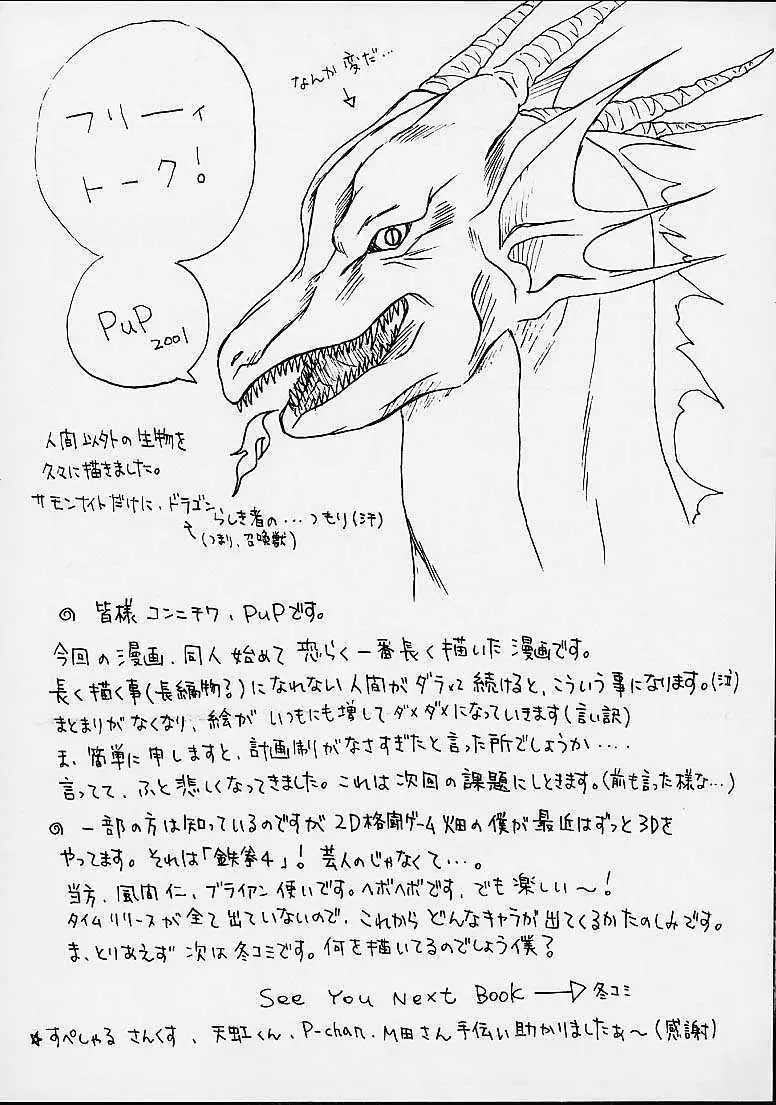 フリーィ
トーク!
なんか変だ…
PuP
2001
人間以外の生物を
久々に描きました。
サモンナイトだけに、ドラゴン
らしき者の… つもり(汗)
(つまり、召喚獣)
皆様 コンニチワ、PuPです。
今回の漫画、同人始めて 恐らく一番長く描いた漫画です。
長く描く事(長編物?)になれない人間がダラダラ続けると、こういう事になります。(泣)
まとまりがなくなり、絵が いつもにも増してダメダメになっていきます(言い訳)
ま、簡単に申しますと、計画制がなさすぎたと言った所でしょうか‥‥
言ってて、ふと悲しくなってきました。これは次回の課題にしときます。(前も言った様な…)
一部の方は知っているのですが 2D格闘ゲーム畑の僕が最近はずっと3Dを
やってます。それは「鉄拳4」! 芸人のじゃなくて…。
当方、風間仁、ブライアン使いです。ヘボヘボです、でも楽しい〜!
タイムリリースが全て出ていないので、これからどんなキャラが出てくるかたのしみです。
ま、とりあえず 次は冬コミです。何を描いてるのでしょう僕?
See You Next Book → 冬コミ
☆すぺしゃる さんくす、天虹くん、P-chan、M田さん 手伝い助かりましたぁ〜(感謝)